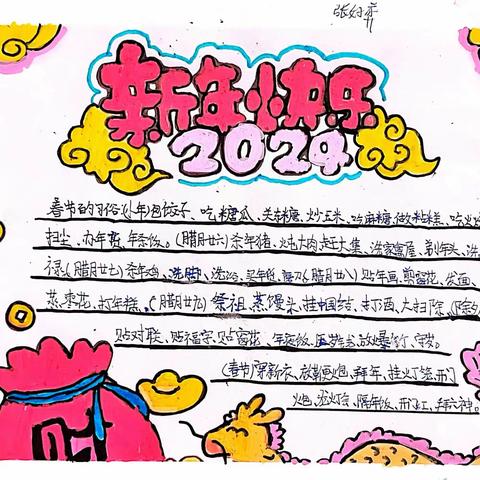 新年快乐
2024
春节的习俗(小年)包饺子、吃糖瓜、关东糖、炒玉米、吃麻糖、做粘糕、吃火烧
扫尘、办年货、年夜饭。(腊月廿六)杀年猪、炖大肉、赶大集、洗
(腊月廿七)杀年鸡、洗 (腊月廿八)贴年画、剪窗花、发面、
蒸枣花、打年糕。(腊月廿九)祭祖、蒸馒头、挂中国结、大扫除、(除夕
贴对联、贴福字、贴窗花、年夜饭、压岁钱、放爆竹、守岁。
(春节)穿新衣、放鞭炮、拜年、挂灯笼、开门
炮、逛灯会、隔年饭、开门红、拜六神。